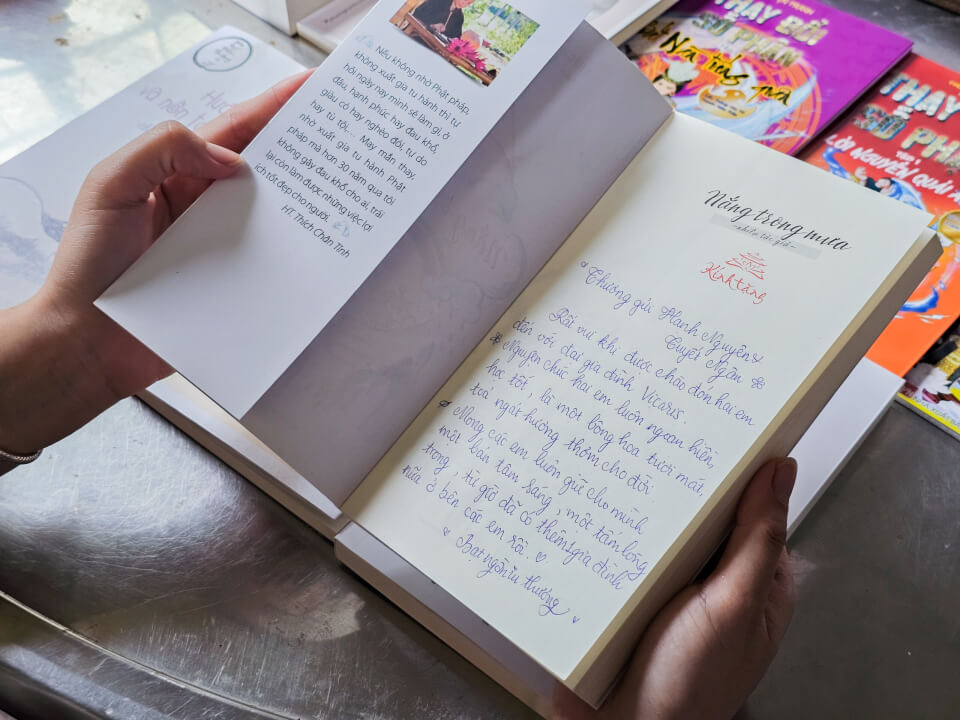 Nếu không nhờ Phật pháp,
không xuất gia tu hành thì tự
hỏi ngày nay mình sẽ làm gì, ở
đâu, hạnh phúc hay đau khổ,
giàu có hay nghèo đói, tự do
hay tù tội.... May mắn thay,
nhờ xuất gia tu hành Phật
pháp mà hơn 30 năm qua tôi
không gây đau khổ cho ai, trái
lại còn làm được những việc lợi
ích tốt đẹp cho người.
HT. Thích Chân Tính
Nắng trong mưa
-nhiều tác giả-
Kính tặng
Thương gửi Hạnh Nguyên &
Tuyết Ngân
Rất vui khi được chào đón hai em
đến với đại gia đình Vicaris.
Nguyện chúc hai em luôn ngoan hiền,
học tốt, là một bông hoa tươi mát,
toả ngát hương thơm cho đời.
Mong các em luôn giữ cho mình
một bản tâm sáng, một tấm lòng
trọng, từ giờ đã có thêm 1 gia đình
nữa ở bên các em rồi.
Bạt ngàn iu thương
THAY ĐỔI
SỐ PHẬN
Nắng trong mưa
THAY ĐỔI
SỐ PHẬN
LỜI NGUYỀN QUÁI